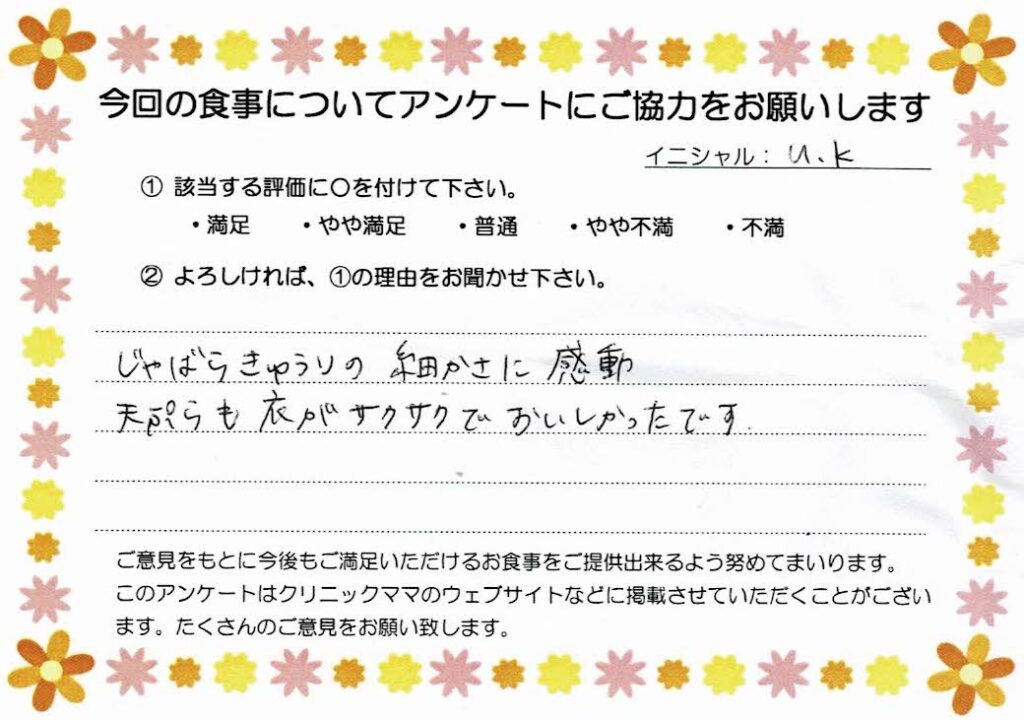 今回の食事についてアンケートにご協力をお願いします
イニシャル： U.K
① 該当する評価に〇を付けて下さい。
・満足 ・やや満足 ・普通 ・やや不満 ・不満
② よろしければ、①の理由をお聞かせ下さい。
じゃばらきゅうりの 細かさに 感動
天ぷらも 衣がサクサクで おいしかったです.
ご意見をもとに今後もご満足いただけるお食事をご提供出来るよう努めてまいります。
このアンケートはクリニックママのウェブサイトなどに掲載させていただくことがござい
ます。たくさんのご意見をお願い致します。